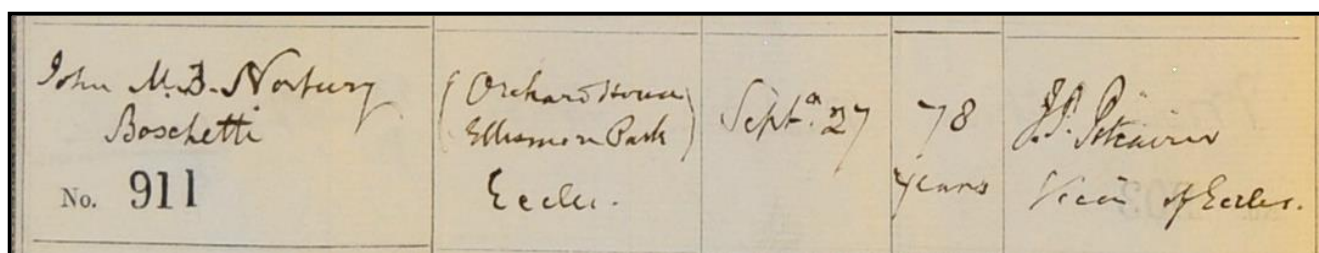 John M. B. Norbury
Boschetti
No. 911
(Orchard House
Ellesmere Park)
Eccles.
Sept. 27
78
years
J. P. Pitcairn
Vicar of Eccles.